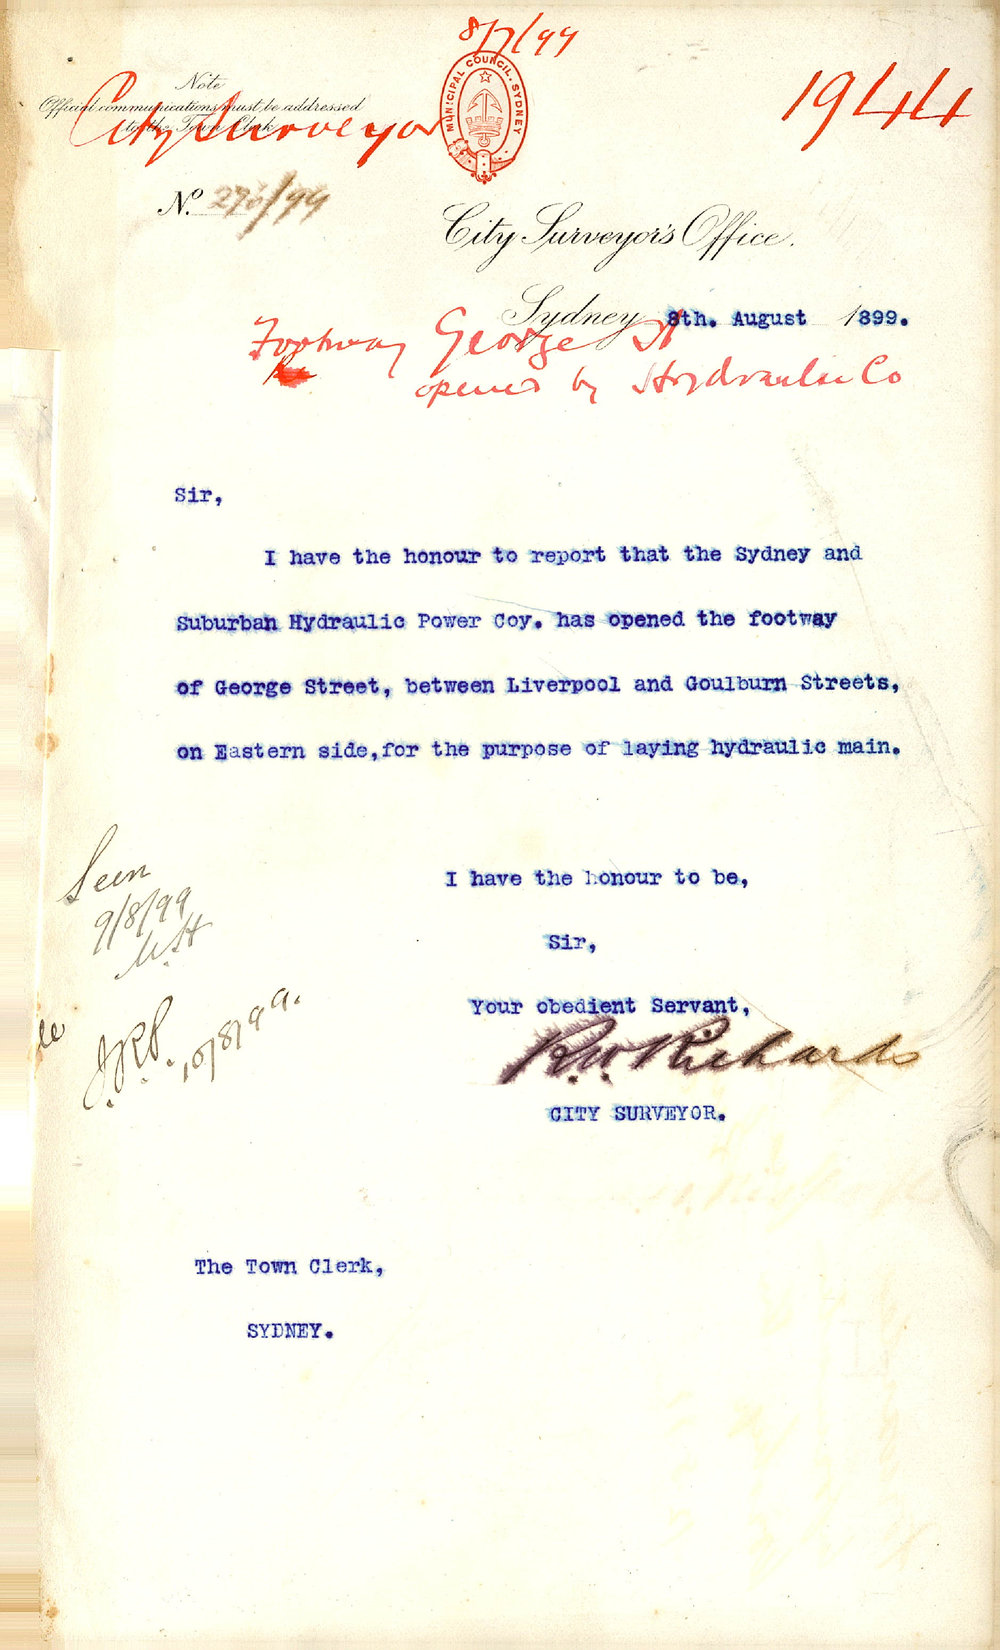 8/7/99
MUNICIPAL COUNCIL. SYDNEY
1944
Note
Official communications must be addressed
to the Town Clerk
City Surveyor
No. 270/99
City Surveyor's Office.
Sydney 8th. August 1899.
Footway George St
opened by Hydraulic Co
Sir,
I have the honour to report that the Sydney and
Suburban Hydraulic Power Coy. has opened the footway
of George Street, between Liverpool and Goulburn Streets,
on Eastern side,for the purpose of laying hydraulic main.
I have the honour to be,
Sir,
Your obedient Servant,
R.W. Richards
CITY SURVEYOR.
Seen
9/8/99
J.R.P. 10/8/99.
The Town Clerk,
SYDNEY.